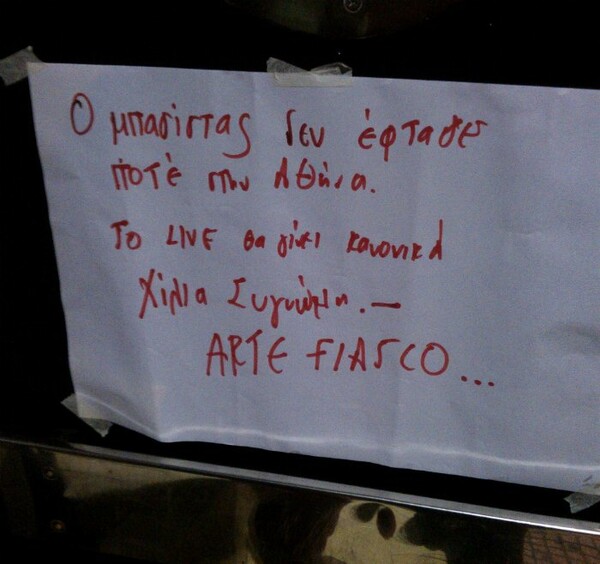 Ο μπασίστας δεν έφτασε
ποτέ στην Αθήνα.
Το LIVE θα γίνει κανονικά
Χίλια Συγνώμη. —
ARTE FIASCO...